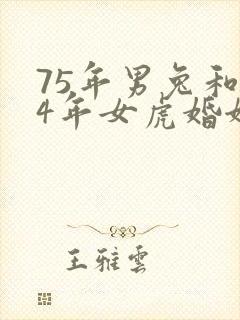 75年男兔和
4年女虎婚
王雅雲